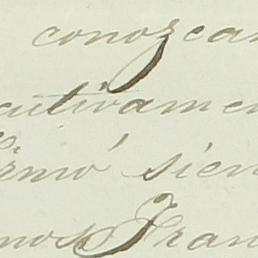 conozcan
cutivamen
firmó sien
nos Fran